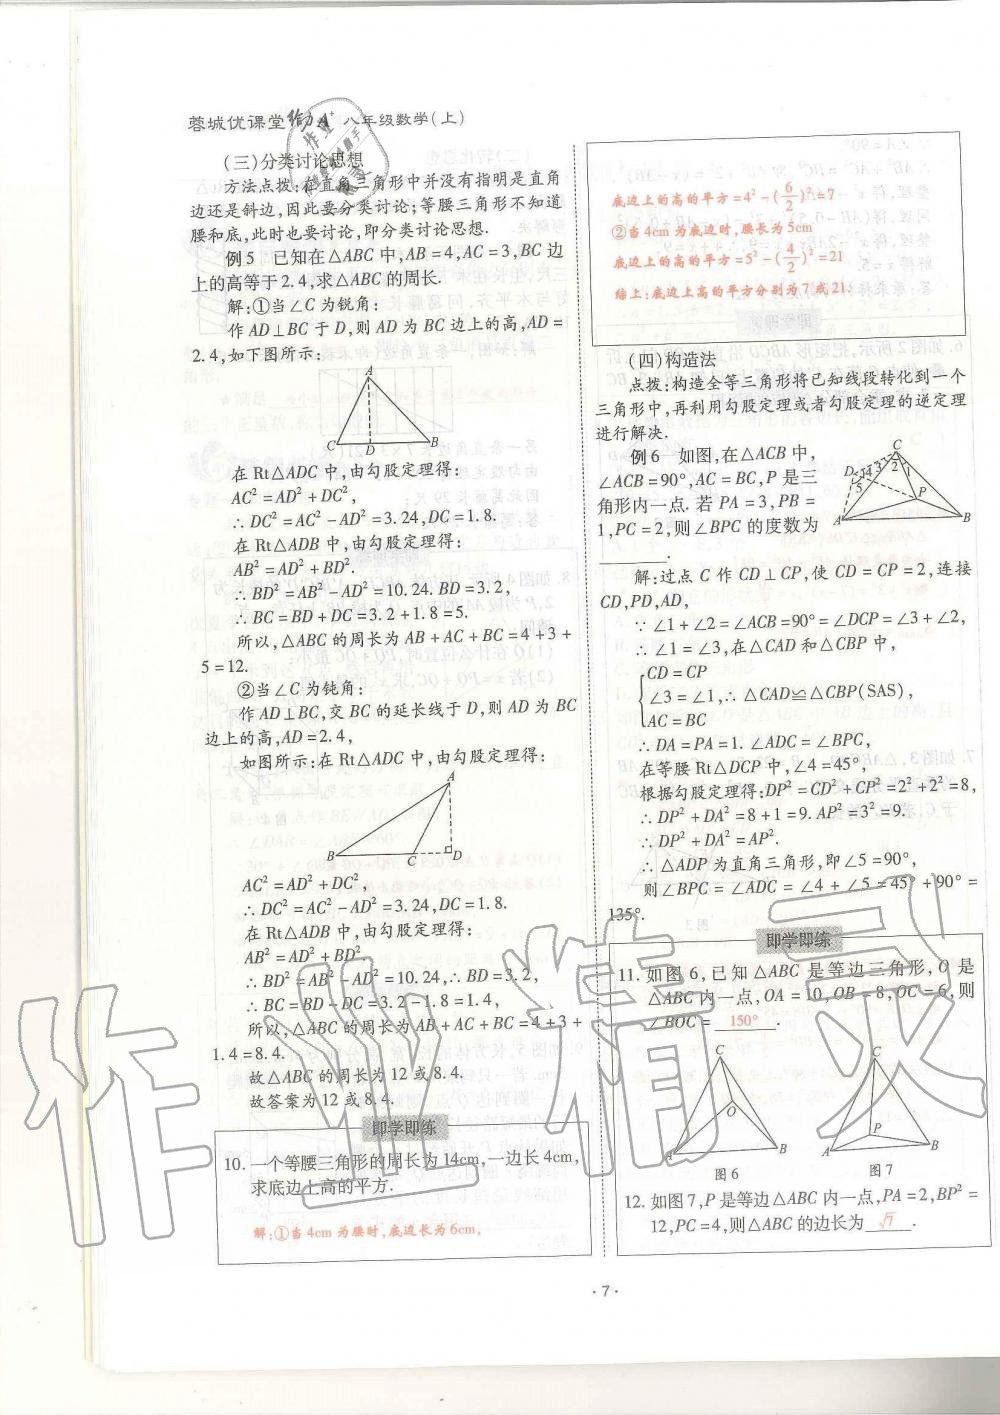 蓉城优课堂 给力A⁺ 八年级数学(上)
(三)分类讨论思想
方法点拨:在直角三角形中并没有指明是直角
边还是斜边,因此要分类讨论;等腰三角形不知道
腰和底,此时也要讨论,即分类讨论思想.
例5 已知在△ABC中,AB=4,AC=3,BC边
上的高等于2.4,求△ABC的周长.
解:①当∠C为锐角:
作AD⊥BC于D,则AD为BC边上的高,AD=
2.4,如下图所示:
A
C D B
在Rt△ADC中,由勾股定理得:
AC²=AD²+DC²,
∴DC²=AC²-AD²=3.24,DC=1.8.
在Rt△ADB中,由勾股定理得:
AB²=AD²+BD².
∴BD²=AB²-AD²=10.24.BD=3.2,
∴BC=BD+DC=3.2+1.8=5.
所以,△ABC的周长为AB+AC+BC=4+3+
5=12.
②当∠C为钝角:
作AD⊥BC,交BC的延长线于D,则AD为BC
边上的高,AD=2.4,
如图所示:在Rt△ADC中,由勾股定理得:
A
B C D
AC²=AD²+DC²,
∴DC²=AC²-AD²=3.24,DC=1.8.
在Rt△ADB中,由勾股定理得:
AB²=AD²+BD²
∴BD²=AB²-AD²=10.24,∴BD=3.2,
∴BC=BD-DC=3.2-1.8=1.4.
所以,△ABC的周长为AB+AC+BC=4+3+
1.4=8.4.
故△ABC的周长为12或8.4.
故答案为12或8.4.
即学即练
10.一个等腰三角形的周长为14cm,一边长4cm,
求底边上高的平方.
解:①当4cm为腰时,底边长为6cm,
底边上的高的平方=4²-(6/2)²=7
②当4cm为底边时,腰长为5cm
底边上的高的平方=5²-(4/2)²=21
综上:底边上高的平方分别为7或21.
(四)构造法
点拨:构造全等三角形将已知线段转化到一个
三角形中,再利用勾股定理或者勾股定理的逆定理
进行解决.
例6 如图,在△ACB中,
∠ACB=90°,AC=BC,P是三
角形内一点.若PA=3,PB=
1,PC=2,则∠BPC的度数为
______.
C
D 4 3 2 1
5 P
A B
解:过点C作CD⊥CP,使CD=CP=2,连接
CD,PD,AD,
∵∠1+∠2=∠ACB=90°=∠DCP=∠3+∠2,
∴∠1=∠3,在△CAD和△CBP中,
CD=CP
∠3=∠1,∴△CAD≌△CBP(SAS),
AC=BC
∴DA=PA=1.∠ADC=∠BPC,
在等腰Rt△DCP中,∠4=45°,
根据勾股定理得:DP²=CD²+CP²=2²+2²=8,
∴DP²+DA²=8+1=9.AP²=3²=9.
∴DP²+DA²=AP².
∴△ADP为直角三角形,即∠5=90°,
则∠BPC=∠ADC=∠4+∠5=45°+90°=
135°.
即学即练
11.如图6,已知△ABC是等边三角形,O是
△ABC内一点,OA=10,OB=8,OC=6,则
∠BOC= 150° .
C
O
A B
图6
C
P
A B
图7
12.如图7,P是等边△ABC内一点,PA=2,BP²=
12,PC=4,则△ABC的边长为 √7 .
·7·
作业精灵